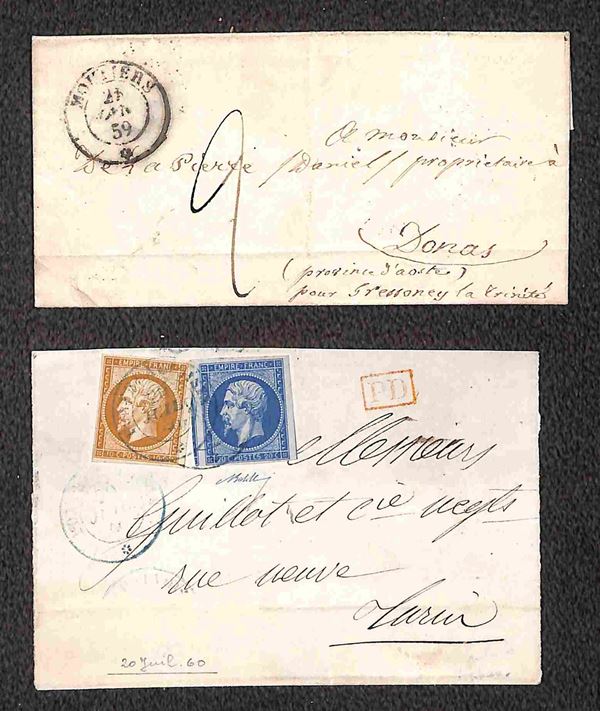 MOUTIERS
21
JUN
59
2
A monsieur
De la Pierre /Daniel/ propriétaire à
Donas
(province d'aoste)
pour Gressoney la trinité
EMPIRE FRANC
10 C POSTES 10 C
EMPIRE FRANC
20 C POSTES 20 C
PD
Messieurs
Guillot et cie negts
rue neuve
Turin
20 Juil. 60